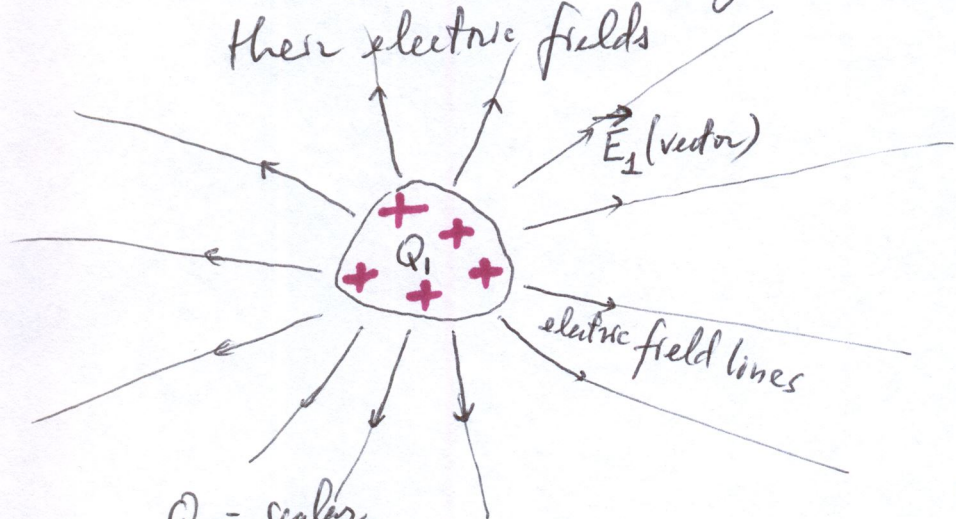 their electric fields
E⃗₁ (vector)
Q₁
electric field lines
Q - scalar